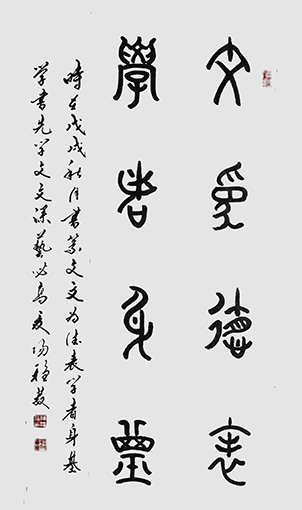 文為德表
學者身基
時在戊戌秋月書篆文文为德表学者身基
学书先学文文深藝必高